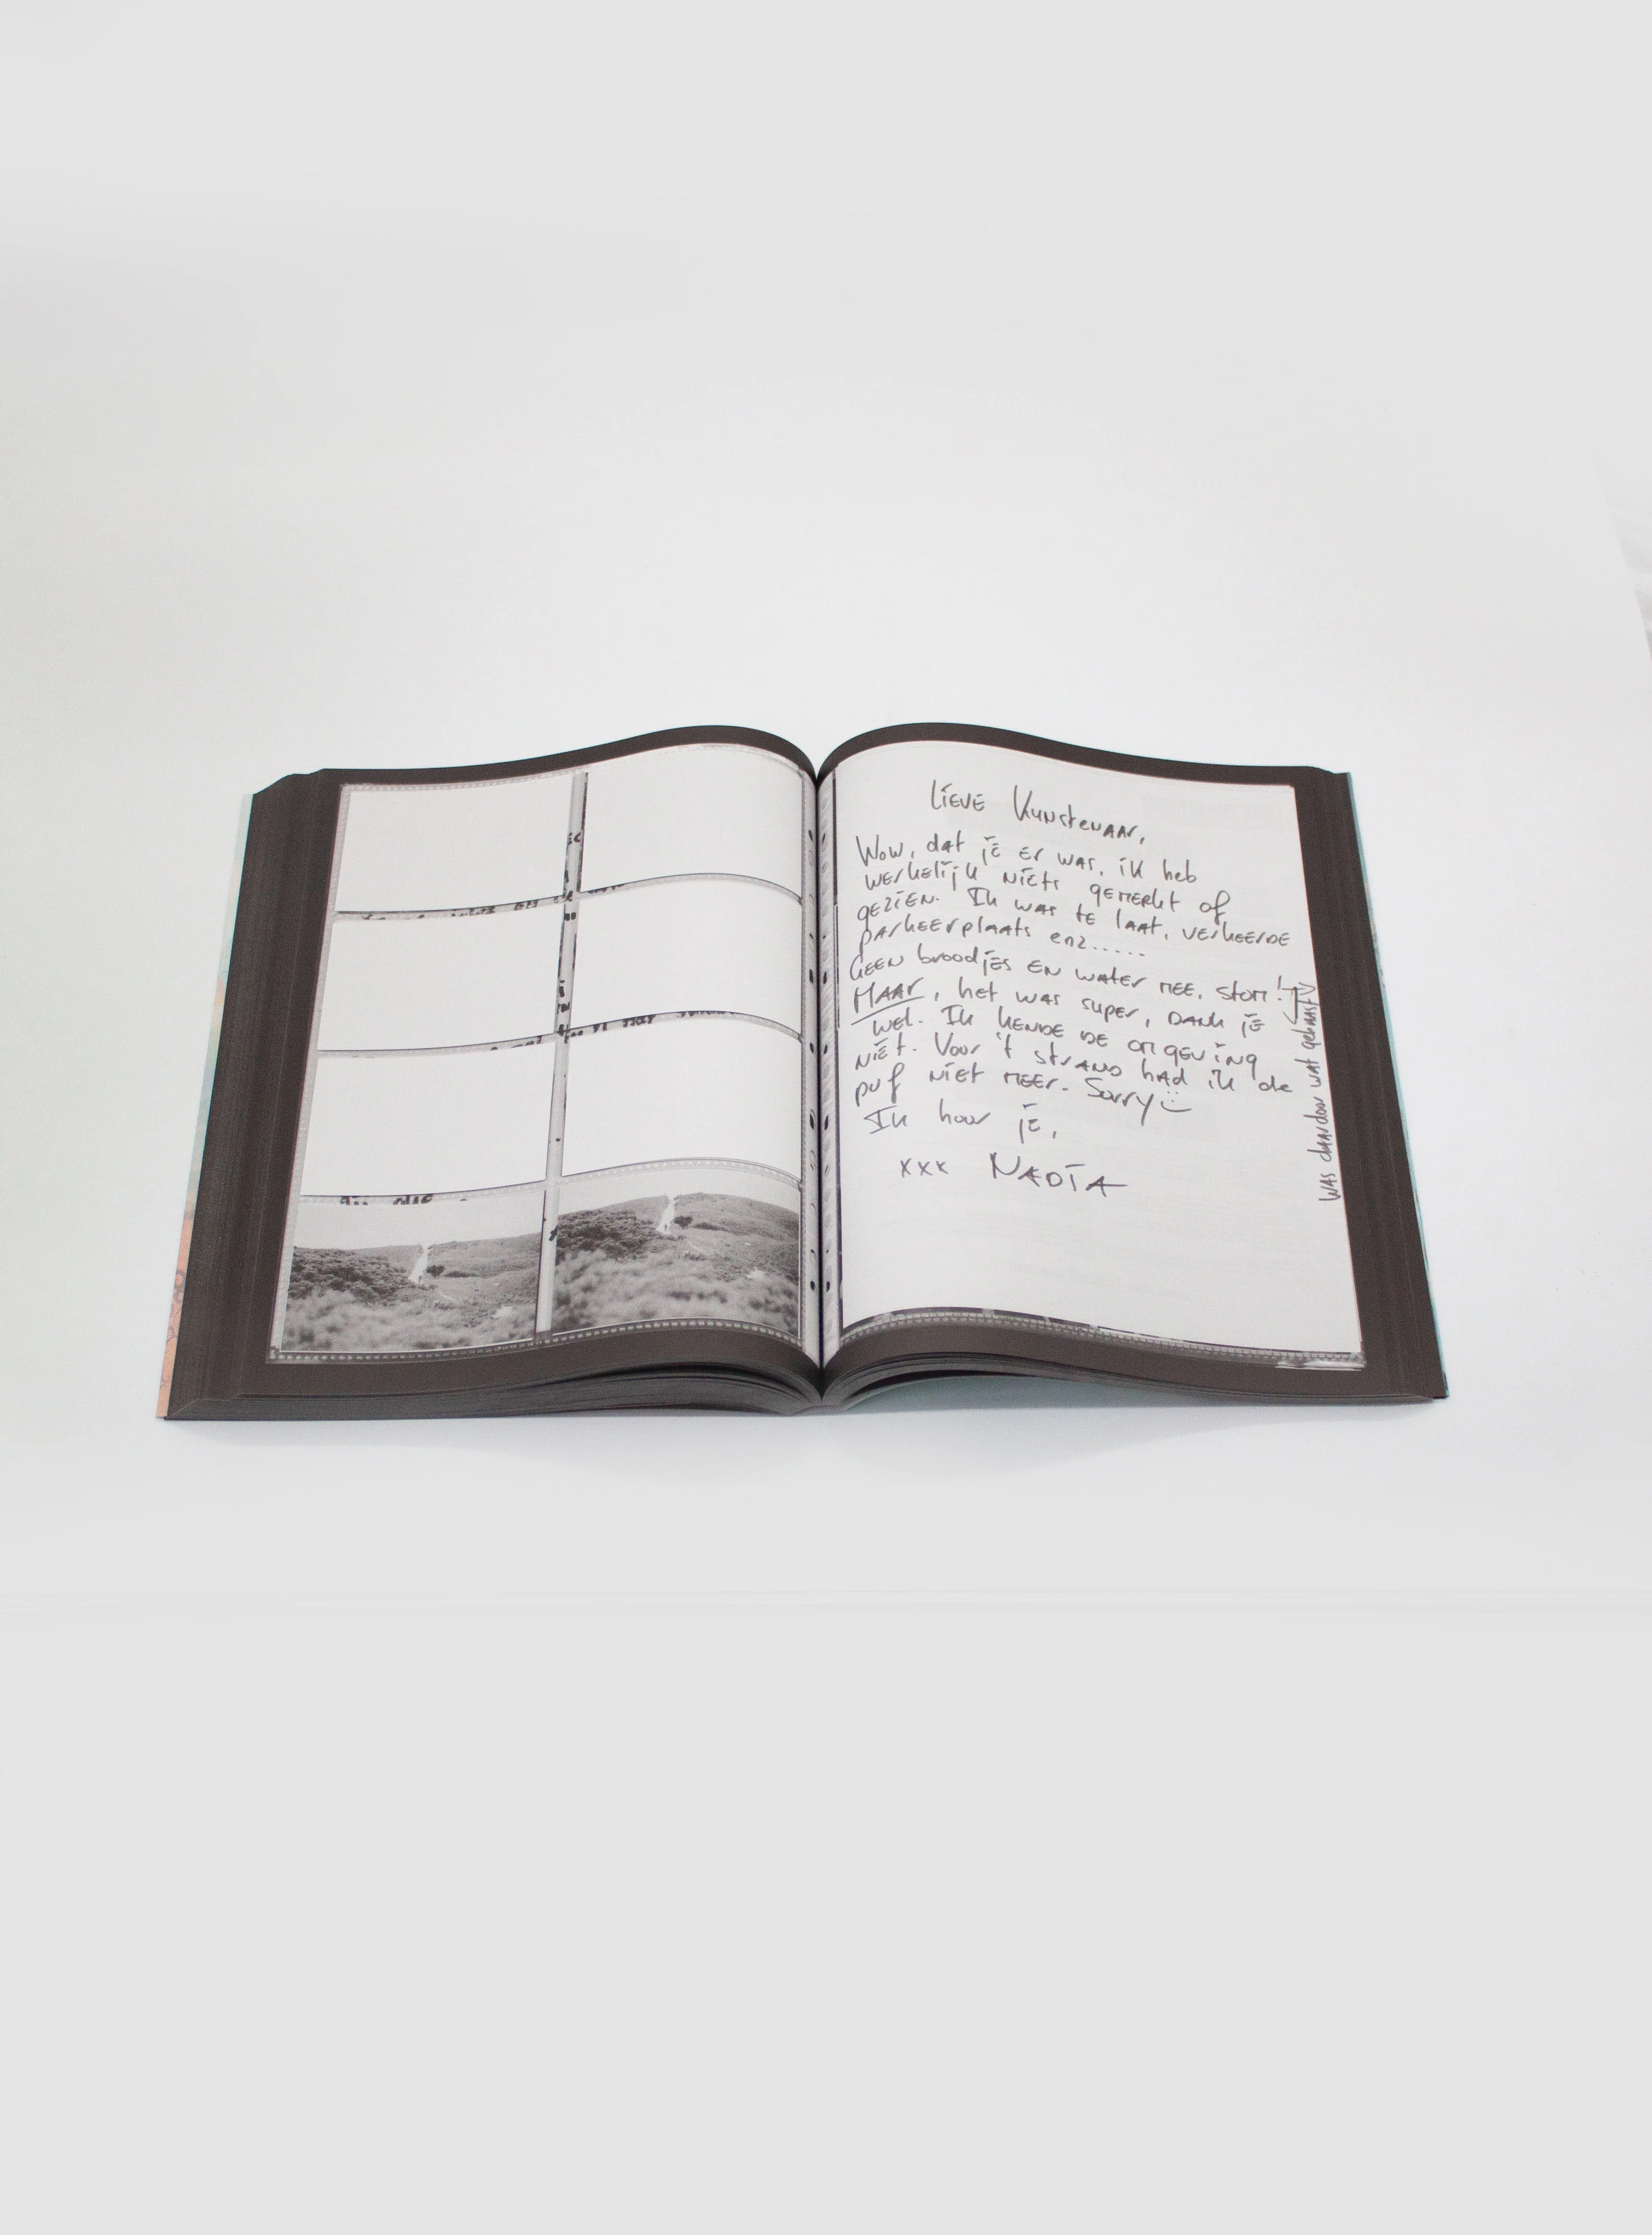 Lieve Kunstenaar,
Wow, dat je er was, ik heb
werkelijk niets gemerkt of
gezien. Ik was te laat, verkeerde
parkeerplaats enz.....
Geen broodjes en water mee, stom!
MAAR, het was super, dank je
wel. Ik kende de omgeving
niet. Voor 't strand had ik de
puf niet meer. Sorry
Ik hoor je,
xxx NADIA
was daardoor wat gehaast